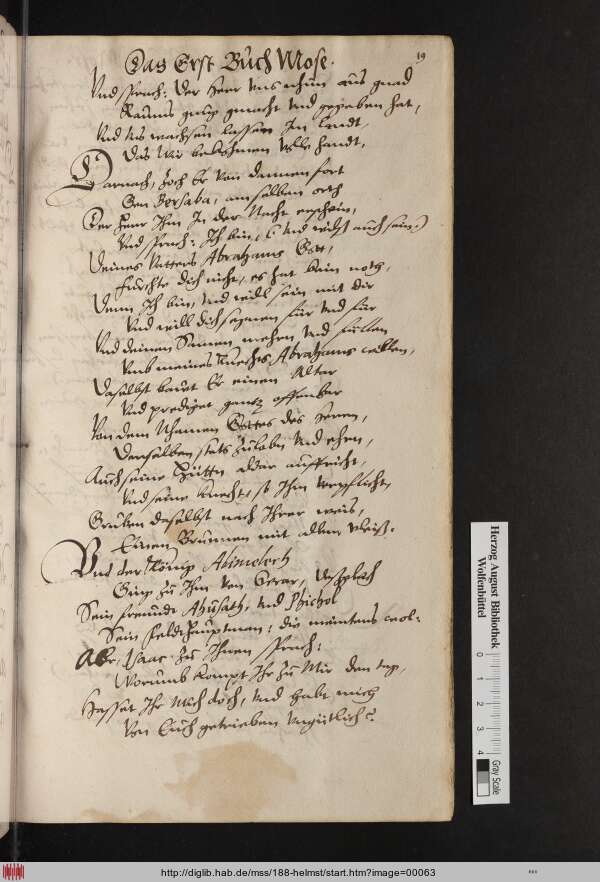 19
Das Erst Buch Mose.
Vnd sprach: Der Herr vns nhun aus gnad
Raums gnug gemacht vnd gegeben hat,
Vnd vns wachsen lassen Im Landt,
Das wir bekohmen volle handt,
Darnach, zoch Er von dannen fort
Gen Bersaba, am selben orth
Der Herr Ihm In der Nacht erschein,
Vnd sprach: Ich bin, (vnd wils auch sein)
Deines Vatters Abrahams Gott,
Furchte dich nicht, es hat kein noth,
Denn Ich bin, vnd will sein mit dir
Vnd will dich segnen für vnd für
Vnd deinen Samen mehen vnd
Vmb meines Knechts Abrahams willen,
Daselbst bauet Er einen Altar
Vnd prediget gantz offenbar
Von dem Nhamen Gottes des Herren,
Denselben stets zuloben vnd ehren,
Auch seine Hütten aldar auffricht,
Vnd seine knecht, so Ihm verpflicht,
Gruben daselbst nach Ihrer weis,
Einen Brunnen mit allem vleiß.
Vnd der König Abimelech
Ging zu Ihm von Gerar,
Sein freunde Ahusath, vnd Phichol
Sein feldthauptman, die meintens wol.
Aber Isaac zu Ihnen sprach:
Worumb kompt Ihr zu Mir den tag,
Hasset Ihr Mich doch, vnd habt mich
Von Euch getrieben vngütlich?
Herzog August Bibliothek
Wolfenbüttel
0 1 2 3 4
Gray Scale
http://diglib.hab.de/mss/188-helmst/start.htm?image=00063